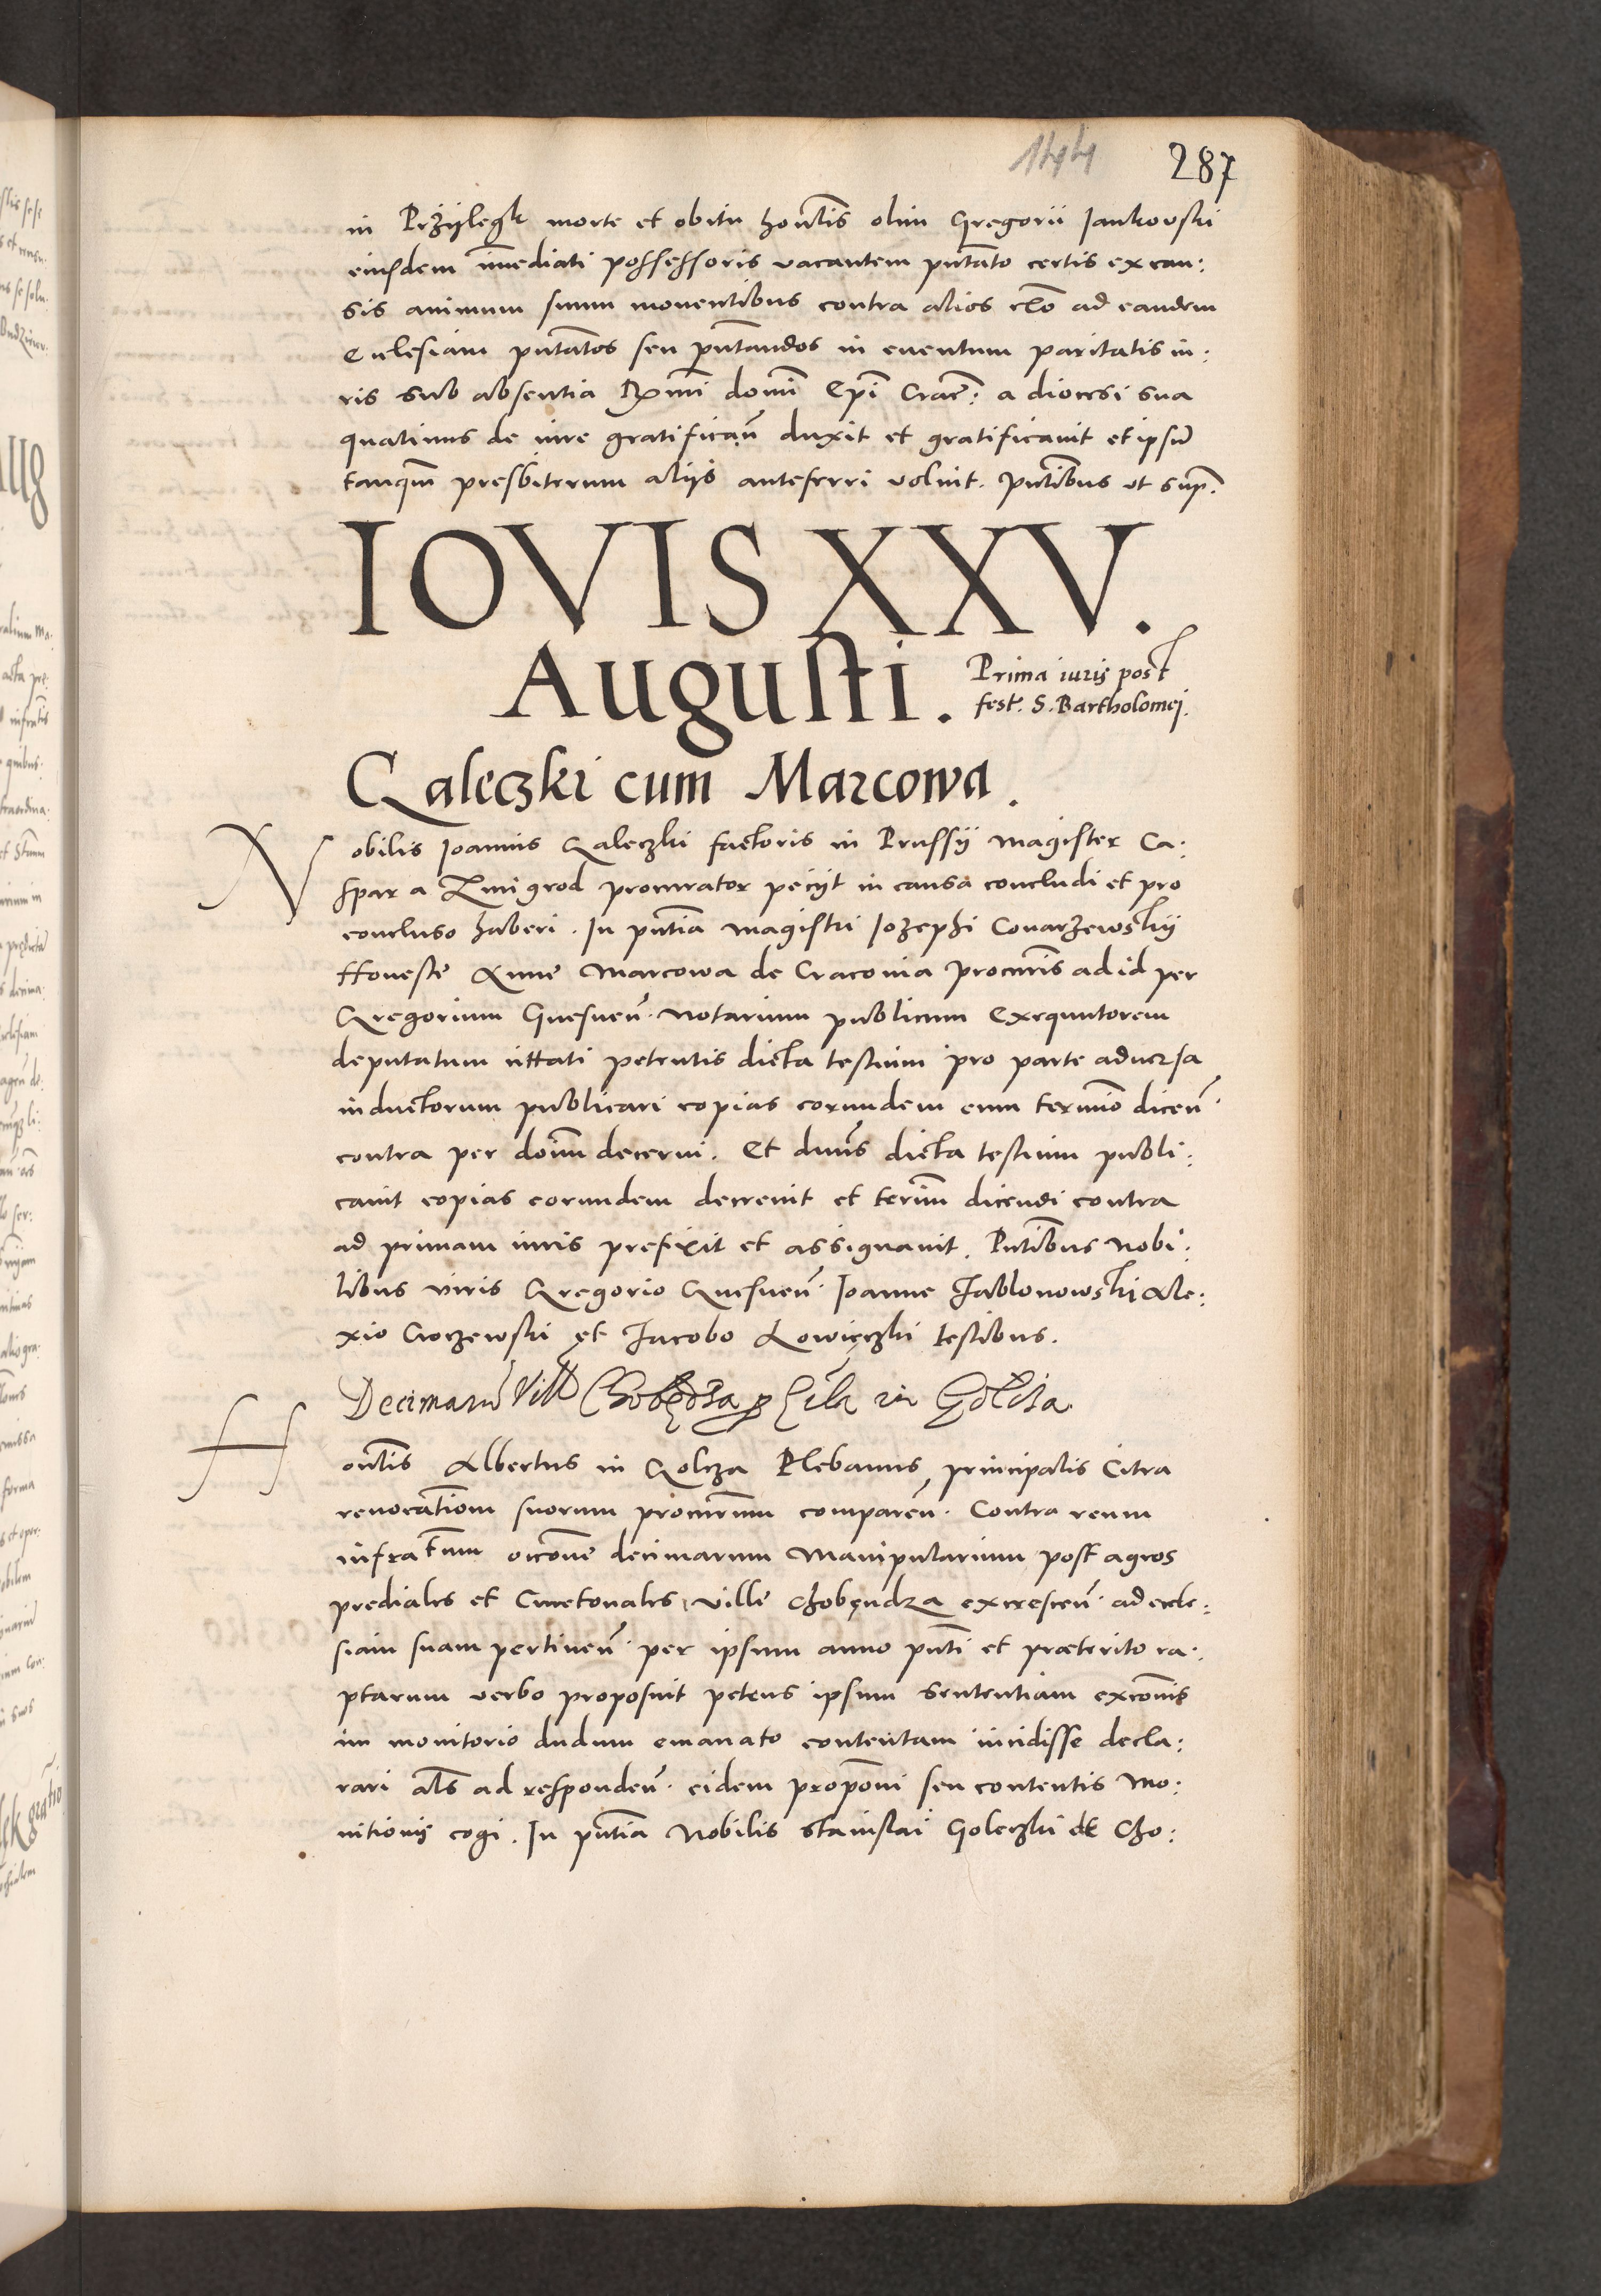 144 287
in Prziilegk morte et obitu hon̄tis olim Gregorii Jankovski
eiusdem im̄ediati possessoris vacantem pn̄tato certis ex cau:
sis animum suum moventibus contra alios cl̄o ad eandem
Ecclesiam pn̄tatos seu pn̄tandos in eventum paritatis iu:
ris sub absentia Rmi domi Epi Crac̄: a diocesi sua
quatinus de iure gratifican̄ duxit et gratificavit et ipsū
tanqm̄ presbiterum aliis anteferri voluit. Pn̄tibus ut sup.
IOVIS XXV.
Augusti. Prima iuris post
fest. S. Bartholomei.
Galeczki cum Marcowa.
Nobilis Joannis Galeczki factoris in Prussij magister Ca:
spar a Zmigrod procurator peciit in causa concludi et pro
concluso haberi. In pn̄tia magistri Jozephi Covarzewskij
Honeste Anne Marcowa de Cracovia procuris̄ ad id per
Gregorium Gnesnen̄. notarium publicum Exequutorem
deputatum citati petentis dicta testium pro parte adversa
inductorum publicari copias eorundem cum termīo dicen̄.
contra per dom̄ decerni. Et dnus̄ dicta testium publi:
cavit copias eorundem decrevit et term̄ dicendi contra
ad primam iuris prefixit et assignavit. Pn̄tibus nobi:
libus viris Gregorio Gnesnen̄. Joanne Jablonowski Ale:
xio Gorzewski et Jacobo Lowięczki testibus.
Decimarū Vill Chobędza p Ecclā in Golcza.
Honn̄tis Albertus in Golcza Plebanus, principalis Citra
revocatiom̄ suorum procurm̄ comparen̄. Contra reum
infratum occōne decimarum Manipularium post agros
prediales et Cmetonales ville Chobęndza excrescen̄. ad eccle:
siam suam pertinen̄. per ipsum anno pn̄ti et præterito ra:
ptarum verbo proposuit petens ipsum sententiam excōmis
im monitorio dudum emanato contentam incidisse decla:
rari als̄ ad responden̄. eidem propōni seu contentis Mo:
nitionis cogi. In pn̄tia Nobilis Stanislai Goleczki de Cho: